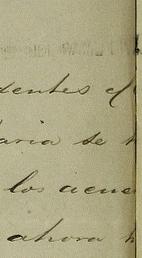 dentes d
aria se h
los acue
ahora h